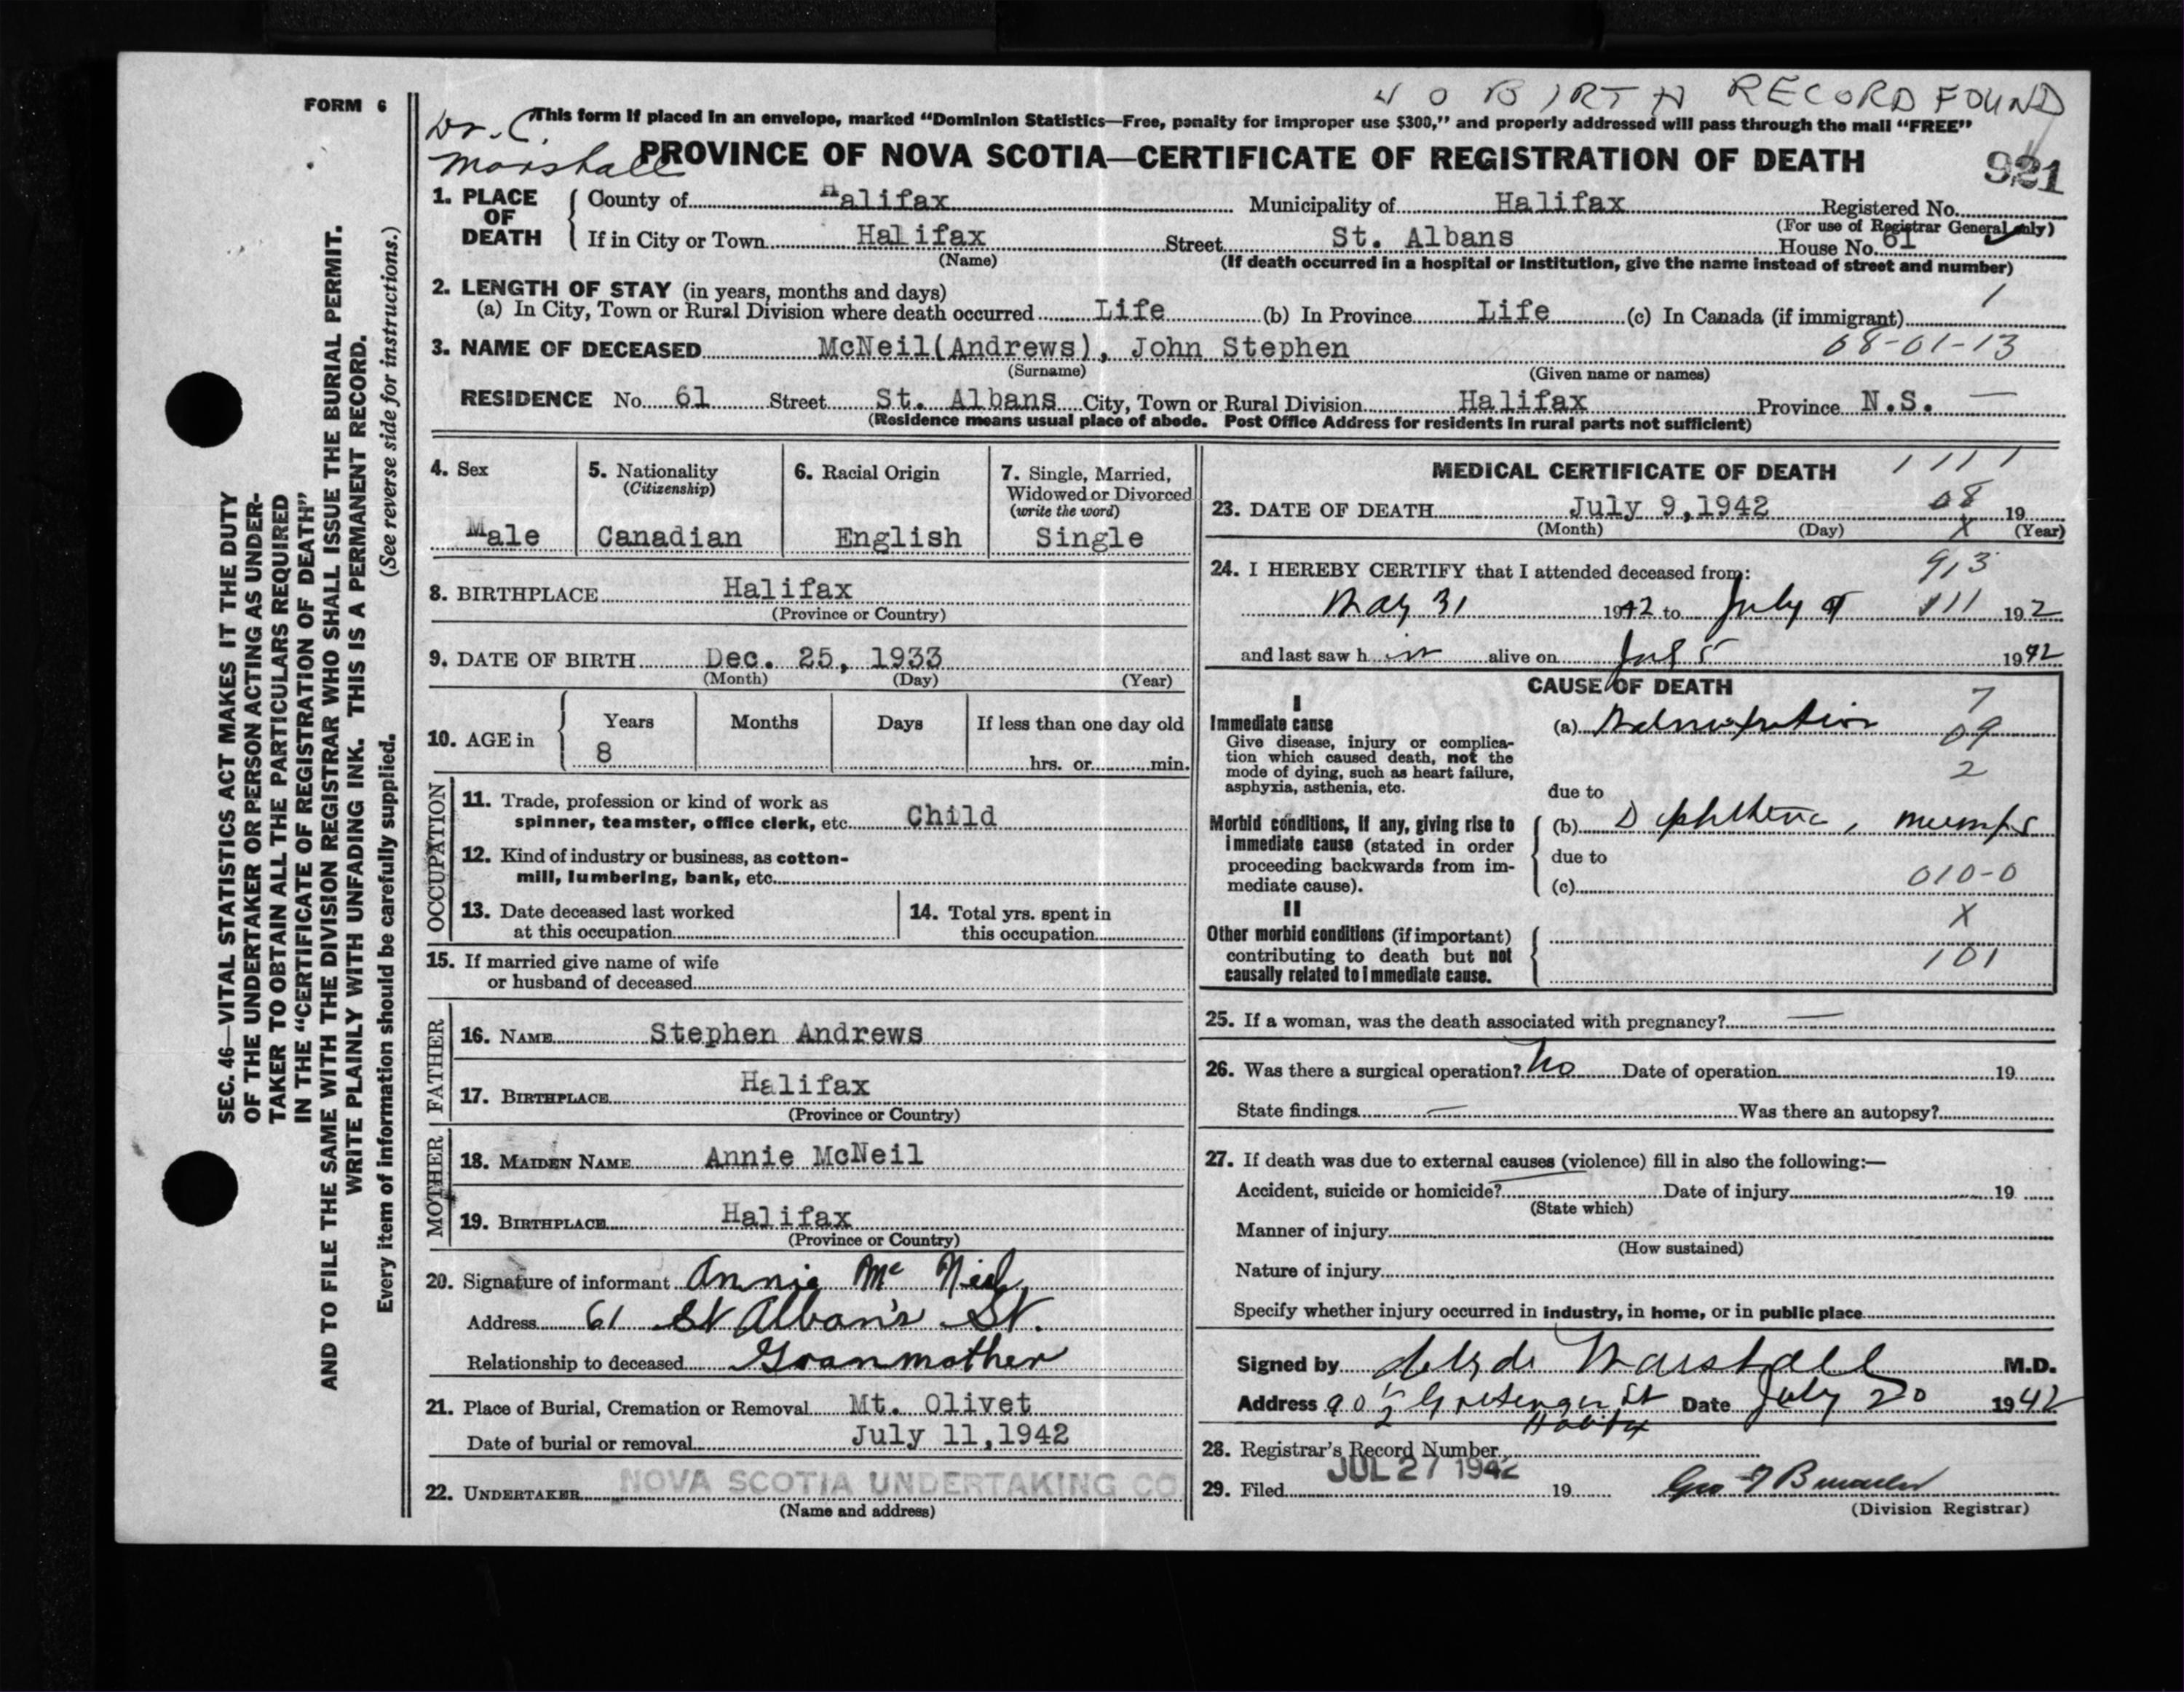 NO BIRTH RECORD FOUND
FORM 6
Dr. C. Marshall
This form if placed in an envelope, marked "Dominion Statistics—Free, penalty for improper use $300," and properly addressed will pass through the mail "FREE"
PROVINCE OF NOVA SCOTIA—CERTIFICATE OF REGISTRATION OF DEATH
921
1. PLACE OF DEATH
County of Halifax Municipality of Halifax Registered No.
(For use of Registrar General only)
If in City or Town Halifax Street St. Albans House No. 61
(Name) (If death occurred in a hospital or institution, give the name instead of street and number)
2. LENGTH OF STAY (in years, months and days) 1
(a) In City, Town or Rural Division where death occurred Life (b) In Province Life (c) In Canada (if immigrant)
3. NAME OF DECEASED McNeil(Andrews), John Stephen 08-01-13
(Surname) (Given name or names)
RESIDENCE No. 61 Street St. Albans City, Town or Rural Division Halifax Province N.S. —
(Residence means usual place of abode. Post Office Address for residents in rural parts not sufficient)
4. Sex
Male
5. Nationality
(Citizenship)
Canadian
6. Racial Origin
English
7. Single, Married,
Widowed or Divorced
(write the word)
Single
8. BIRTHPLACE Halifax
(Province or Country)
9. DATE OF BIRTH Dec. 25, 1933
(Month) (Day) (Year)
10. AGE in
Years Months Days If less than one day old
8 hrs. or min.
OCCUPATION
11. Trade, profession or kind of work as
spinner, teamster, office clerk, etc. Child
12. Kind of industry or business, as cotton-
mill, lumbering, bank, etc.
13. Date deceased last worked
at this occupation
14. Total yrs. spent in
this occupation
15. If married give name of wife
or husband of deceased
FATHER
16. NAME Stephen Andrews
17. BIRTHPLACE Halifax
(Province or Country)
MOTHER
18. MAIDEN NAME Annie McNeil
19. BIRTHPLACE Halifax
(Province or Country)
20. Signature of informant Annie Mc Neil
Address 61 St Alban's St.
Relationship to deceased Granmother
21. Place of Burial, Cremation or Removal Mt. Olivet
Date of burial or removal July 11,1942
22. UNDERTAKER NOVA SCOTIA UNDERTAKING CO
(Name and address)
MEDICAL CERTIFICATE OF DEATH 1111
23. DATE OF DEATH July 9,1942 08 19
(Month) (Day) X (Year)
24. I HEREBY CERTIFY that I attended deceased from: 913
May 31 1942 to July 9 111 192
and last saw h im alive on Jul 5 1942
CAUSE OF DEATH
I
Immediate cause
Give disease, injury or complica-
tion which caused death, not the
mode of dying, such as heart failure,
asphyxia, asthenia, etc.
(a) Malnutrition 7
09
2
due to
Morbid conditions, if any, giving rise to
immediate cause (stated in order
proceeding backwards from im-
mediate cause).
(b) Diphtheria, mumps
due to
(c) 010-0
II
Other morbid conditions (if important)
contributing to death but not
causally related to immediate cause.
X
101
25. If a woman, was the death associated with pregnancy? —
26. Was there a surgical operation? No Date of operation 19
State findings — Was there an autopsy?
27. If death was due to external causes (violence) fill in also the following:—
Accident, suicide or homicide? Date of injury 19
(State which)
Manner of injury
(How sustained)
Nature of injury
Specify whether injury occurred in industry, in home, or in public place
Signed by Clyde Marshall M.D.
Address 90 1/2 St Date July 20 1942
Halifax
28. Registrar's Record Number
29. Filed JUL 27 1942 19
(Division Registrar)
SEC. 46—VITAL STATISTICS ACT MAKES IT THE DUTY
OF THE UNDERTAKER OR PERSON ACTING AS UNDER-
TAKER TO OBTAIN ALL THE PARTICULARS REQUIRED
IN THE "CERTIFICATE OF REGISTRATION OF DEATH"
AND TO FILE THE SAME WITH THE DIVISION REGISTRAR WHO SHALL ISSUE THE BURIAL PERMIT.
WRITE PLAINLY WITH UNFADING INK. THIS IS A PERMANENT RECORD.
Every item of information should be carefully supplied. (See reverse side for instructions.)